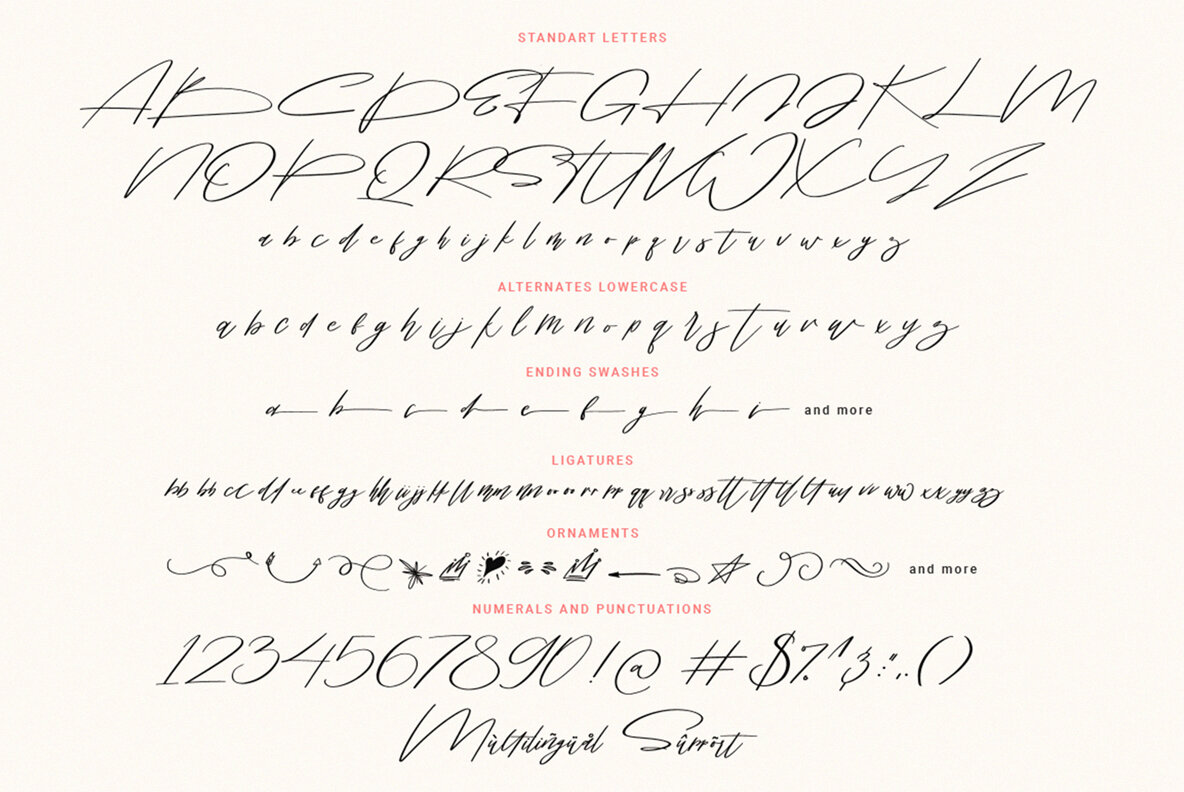 STANDART LETTERS
A B C D E F G H I J K L M
N O P Q R S T U V W X Y Z
a b c d e f g h i j k l m n o p q r s t u v w x y z
ALTERNATES LOWERCASE
a b c d e f g h i j k l m n o p q r s t u v w x y z
ENDING SWASHES
a b c d e f g h i and more
LIGATURES
bb bb cc dd ee ff gg hh ii jj kk ll mm nn oo oo rr pp qq rr ss ss tt tf tl lt uu vv ww xx yy zz
ORNAMENTS
and more
NUMERALS AND PUNCTUATIONS
1 2 3 4 5 6 7 8 9 0 ! @ # $ % ^ & : " , . ( )
Mùltiliñgüål Sûppõrt